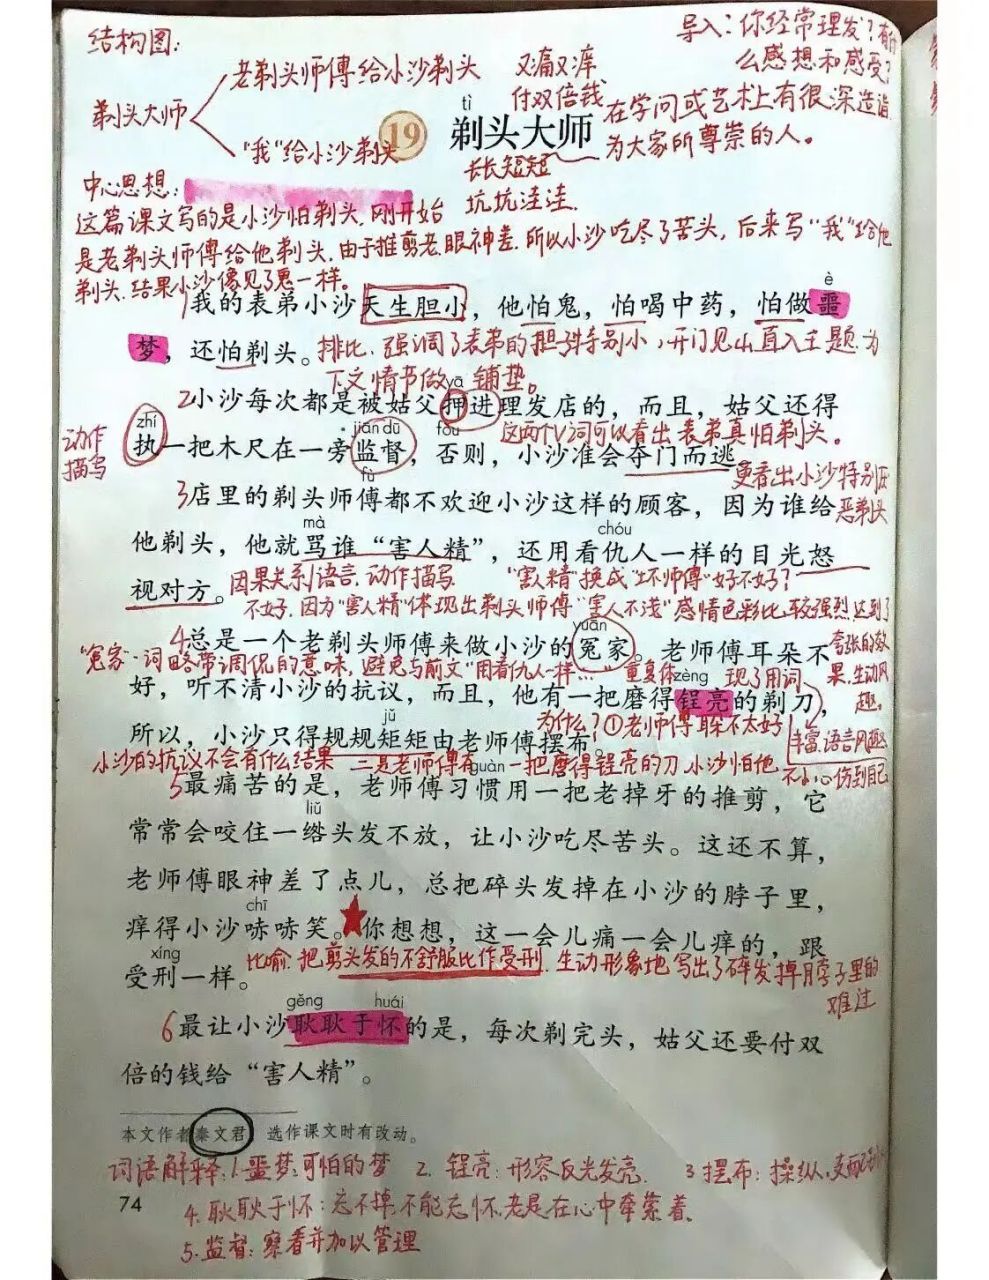 结构图:
导入:你经常理发?有什
么感想和感受?
剃头大师
老剃头师傅给小沙剃头
又痛又痒
付双倍钱
"我"给小沙剃头
长长短短
坑坑洼洼
tì
19 剃头大师
在学问或艺术上有很深造诣
为大家所尊崇的人。
中心思想:
这篇课文写的是小沙怕剃头,刚开始
是老剃头师傅给他剃头,由于推剪老,眼神差,所以小沙吃尽了苦头,后来写"我"给他
剃头,结果小沙像见了鬼一样。
è
1我的表弟小沙天生胆小,他怕鬼,怕喝中药,怕做噩
梦,还怕剃头。
排比,强调了表弟的胆子特别小,开门见山直入主题,为
下文情节做铺垫。
yā
2小沙每次都是被姑父押进理发店的,而且,姑父还得
这两个V词可以看出表弟真怕剃头。
动作
描写
zhí jiān dū fǒu
执一把木尺在一旁监督,否则,小沙准会夺门而逃
更看出小沙特别厌
恶剃头
fù
3店里的剃头师傅都不欢迎小沙这样的顾客,因为谁给
mà chóu
他剃头,他就骂谁“害人精”,还用看仇人一样的目光怒
视对方。
因果关系,语言,动作描写
"害人精"换成"坏师傅"好不好?
不好,因为"害人精"体现出剃头师傅"害人不浅"感情色彩比较强烈,达到了
夸张的效
果,生动风
趣。
yuān
4总是一个老剃头师傅来做小沙的冤家。老师傅耳朵不
"冤家"一词略带调侃的意味,避免与前文"用看仇人一样……"重复,体
现了用词
丰富,语言风趣
zèng
好,听不清小沙的抗议,而且,他有一把磨得锃亮的剃刀,
为什么?①老师傅耳朵不太好
jǔ
所以,小沙只得规规矩矩由老师傅摆布。
小沙的抗议不会有什么结果 二是老师傅有一把磨得锃亮的刀,小沙怕他
不小心伤到自己
guàn
5最痛苦的是,老师傅习惯用一把老掉牙的推剪,它
liǔ
常常会咬住一绺头发不放,让小沙吃尽苦头。这还不算,
老师傅眼神差了点儿,总把碎头发掉在小沙的脖子里,
chī
痒得小沙哧哧笑。你想想,这一会儿痛一会儿痒的,跟
xíng
受刑一样。
比喻,把剪头发的不舒服比作受刑,生动形象地写出了碎发掉脖子里的
难过
gěng huái
6最让小沙耿耿于怀的是,每次剃完头,姑父还要付双
倍的钱给“害人精”。
本文作者秦文君,选作课文时有改动。
词语解释:1.噩梦:可怕的梦 2. 锃亮:形容反光发亮. 3 摆布:操纵,支配
4. 耿耿于怀:忘不掉,不能忘怀,老是在心中牵萦着.
5.监督:察看并加以管理
74